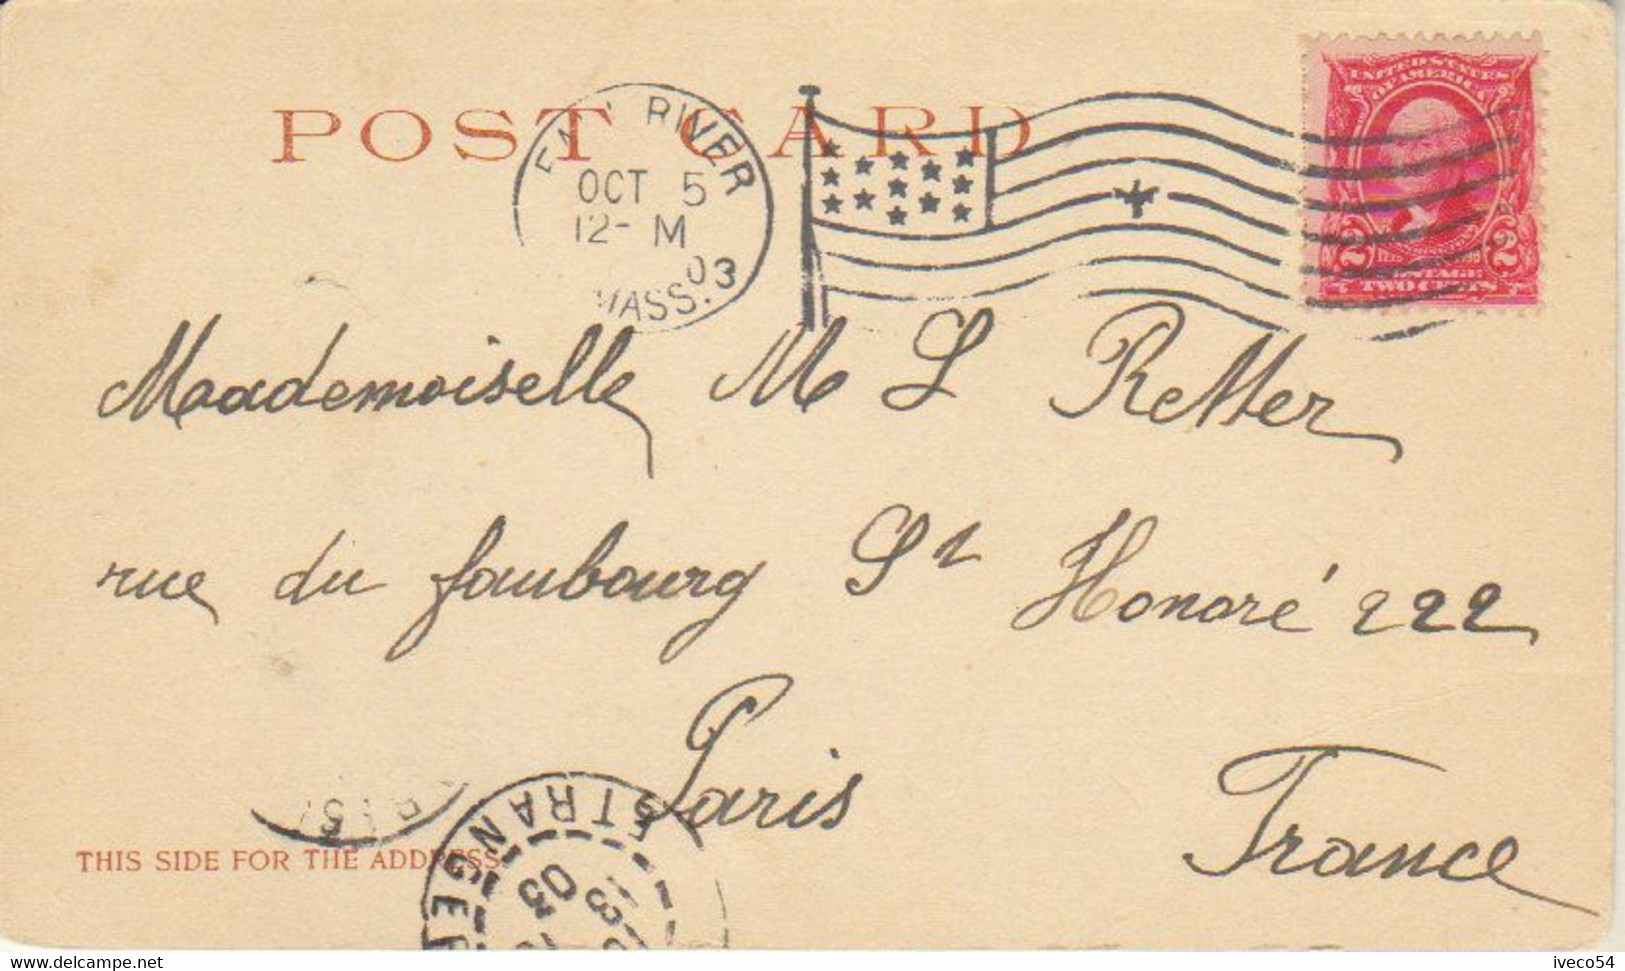 POST CARD
RIVER
OCT 5
12- M
03
MASS.
UNITED STATES
OF AMERICA
2 2
POSTAGE
TWO CENTS
Mademoiselle M L Retter
rue du faubourg St Honoré 222
Paris
France
THIS SIDE FOR THE ADDRESS
ETRANGER
03
www.delcampe.net
iveco54